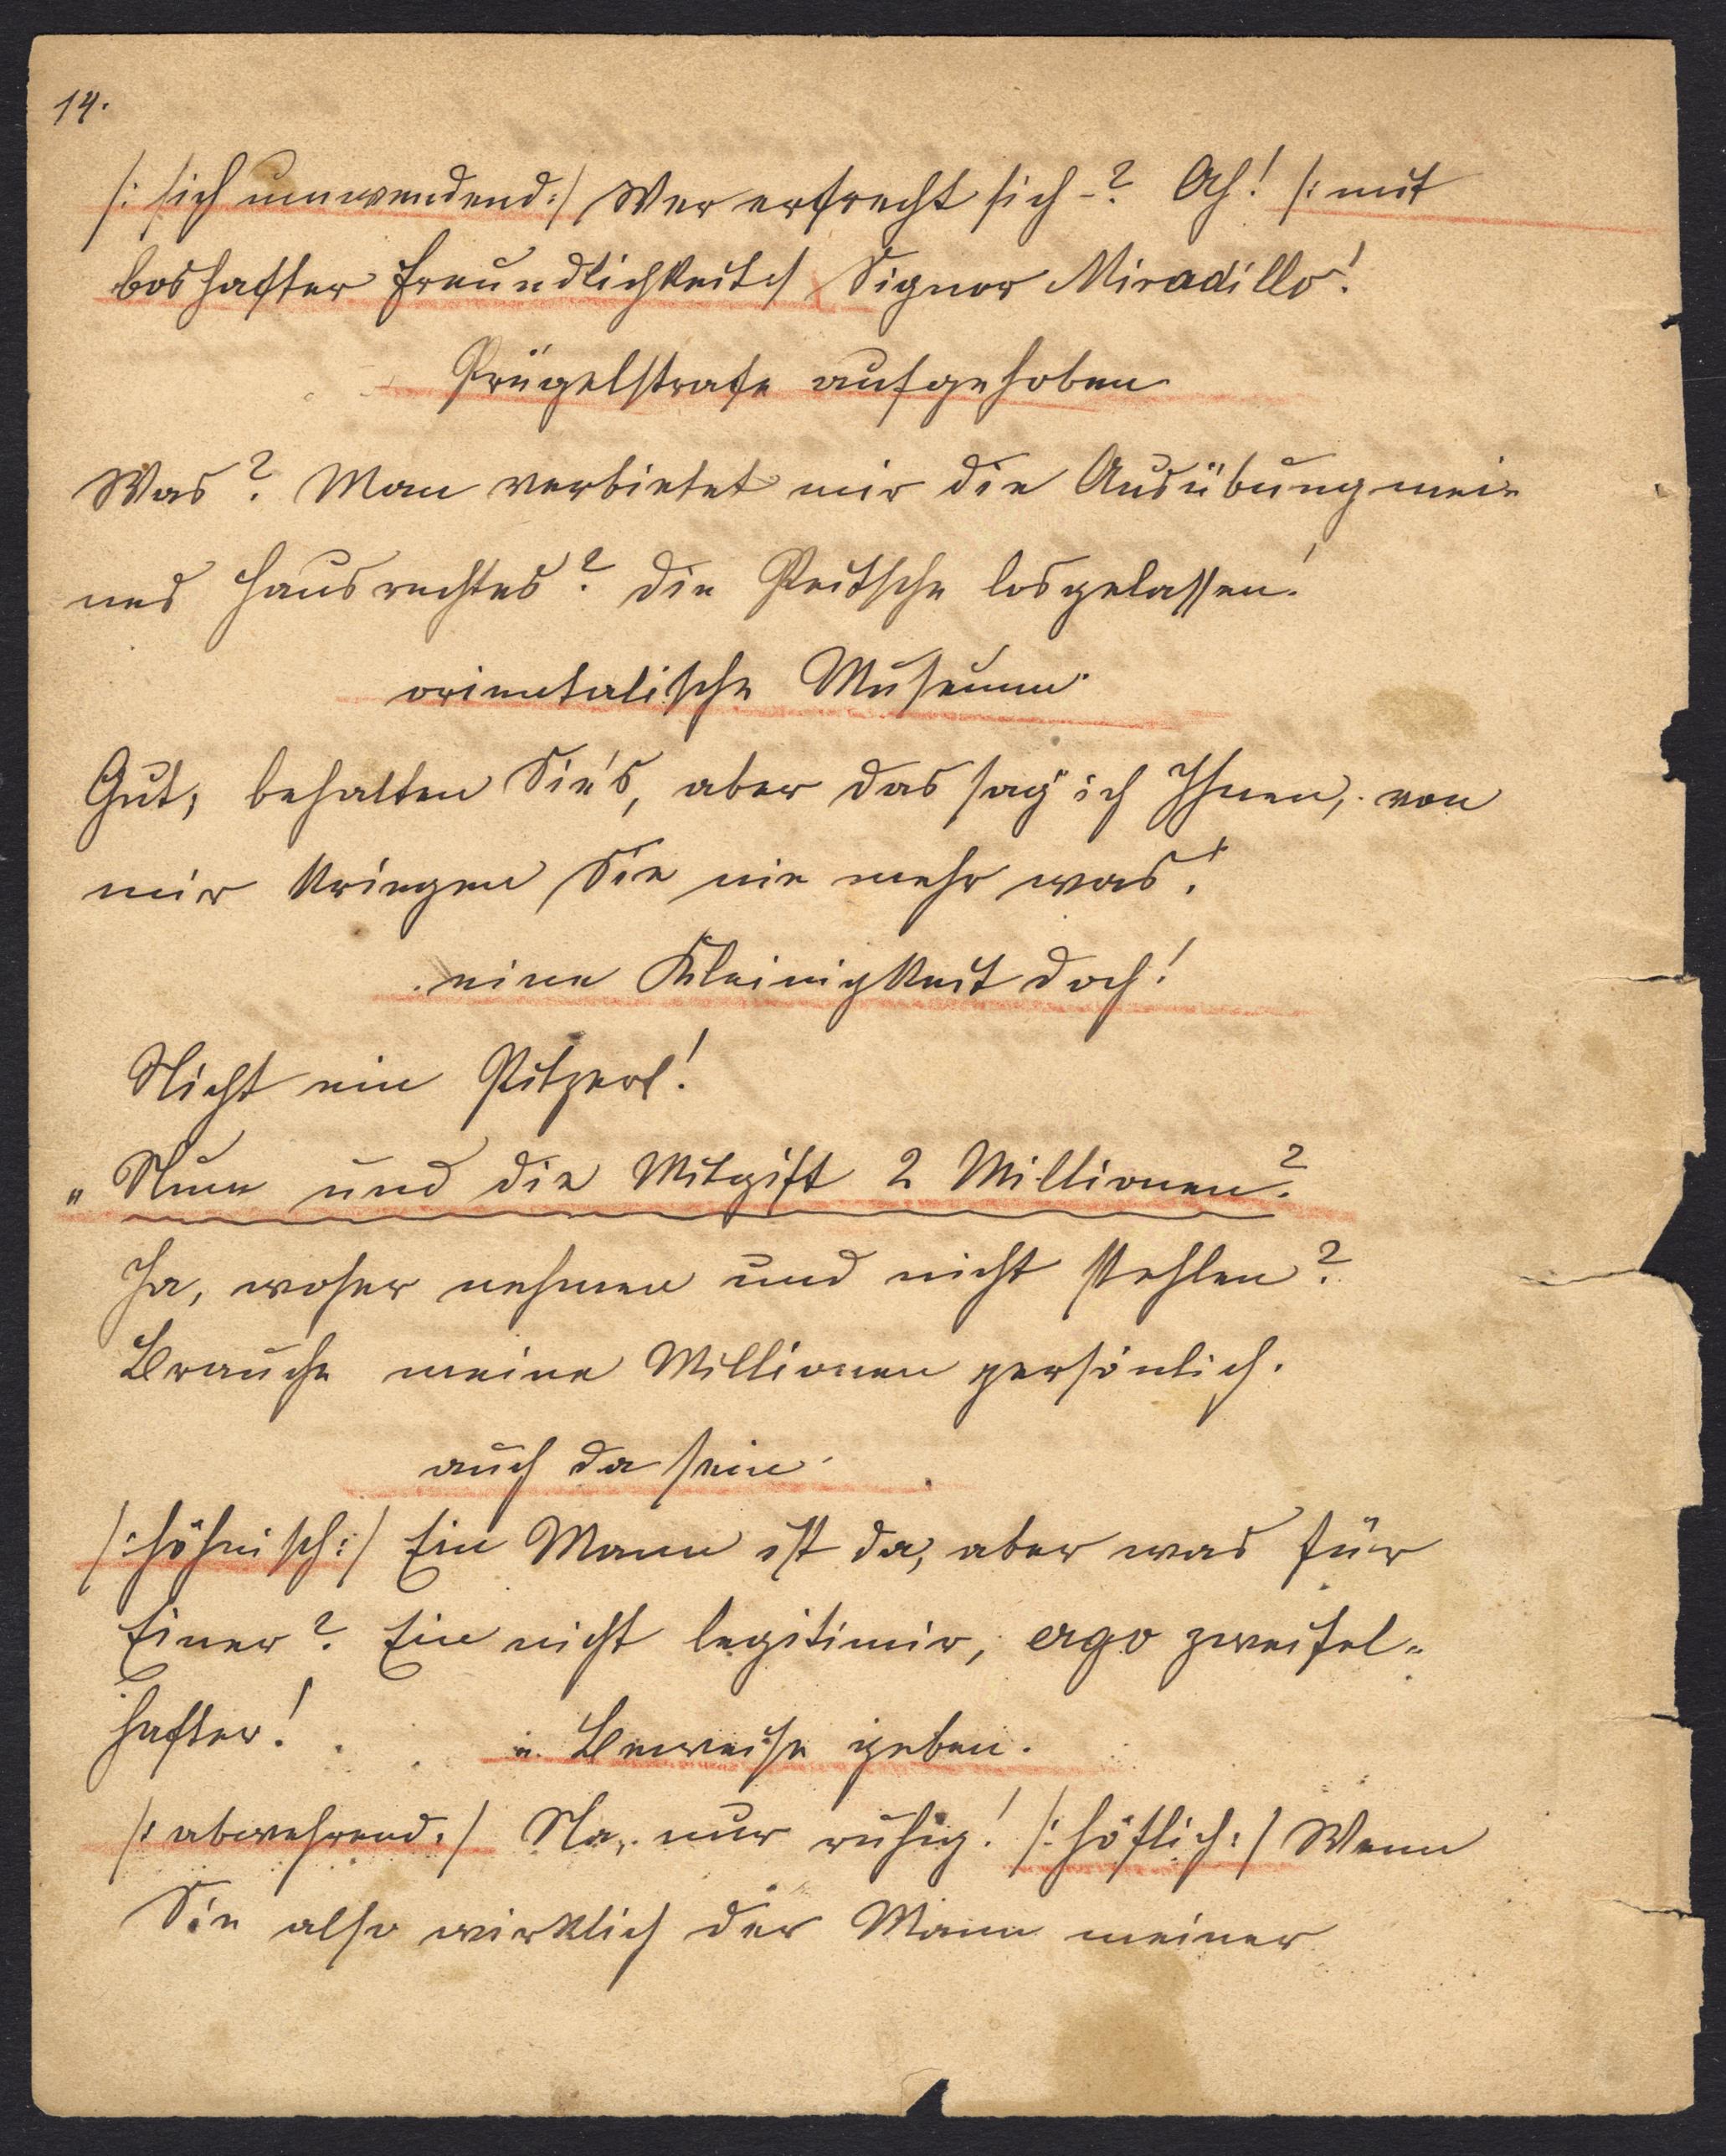 14.
/: sich umwendend :/ Wer erfrecht sich -? Ah! /: mit
boshafter Freundlichkeit :/ Signor Miradillo!
Prügelstrafe aufgehoben
Was? Man verbietet mir die Ausübung mei-
nes Hausrechtes? Die Peitsche losgelassen!
orientalische Museum.
Gut, behalten Sie's, aber das sag' ich Ihnen, von
mir kriegen Sie nie mehr was!
eine Kleinigkeit doch!
Nicht ein Pitzerl!
" Nun und die Mitgift 2 Millionen?
Ja, woher nehmen und nicht stehlen?
Brauche meine Millionen persönlich.
auch da sein.
/: höhnisch :/ Ein Mann ist da, aber was für
Einer? Ein nicht legitimir, ergo zweifel-
hafter!
Beweise geben.
/: abwehrend :/ Na, nur ruhig! /: höflich :/ Wenn
Sie also wirklich der Mann meiner